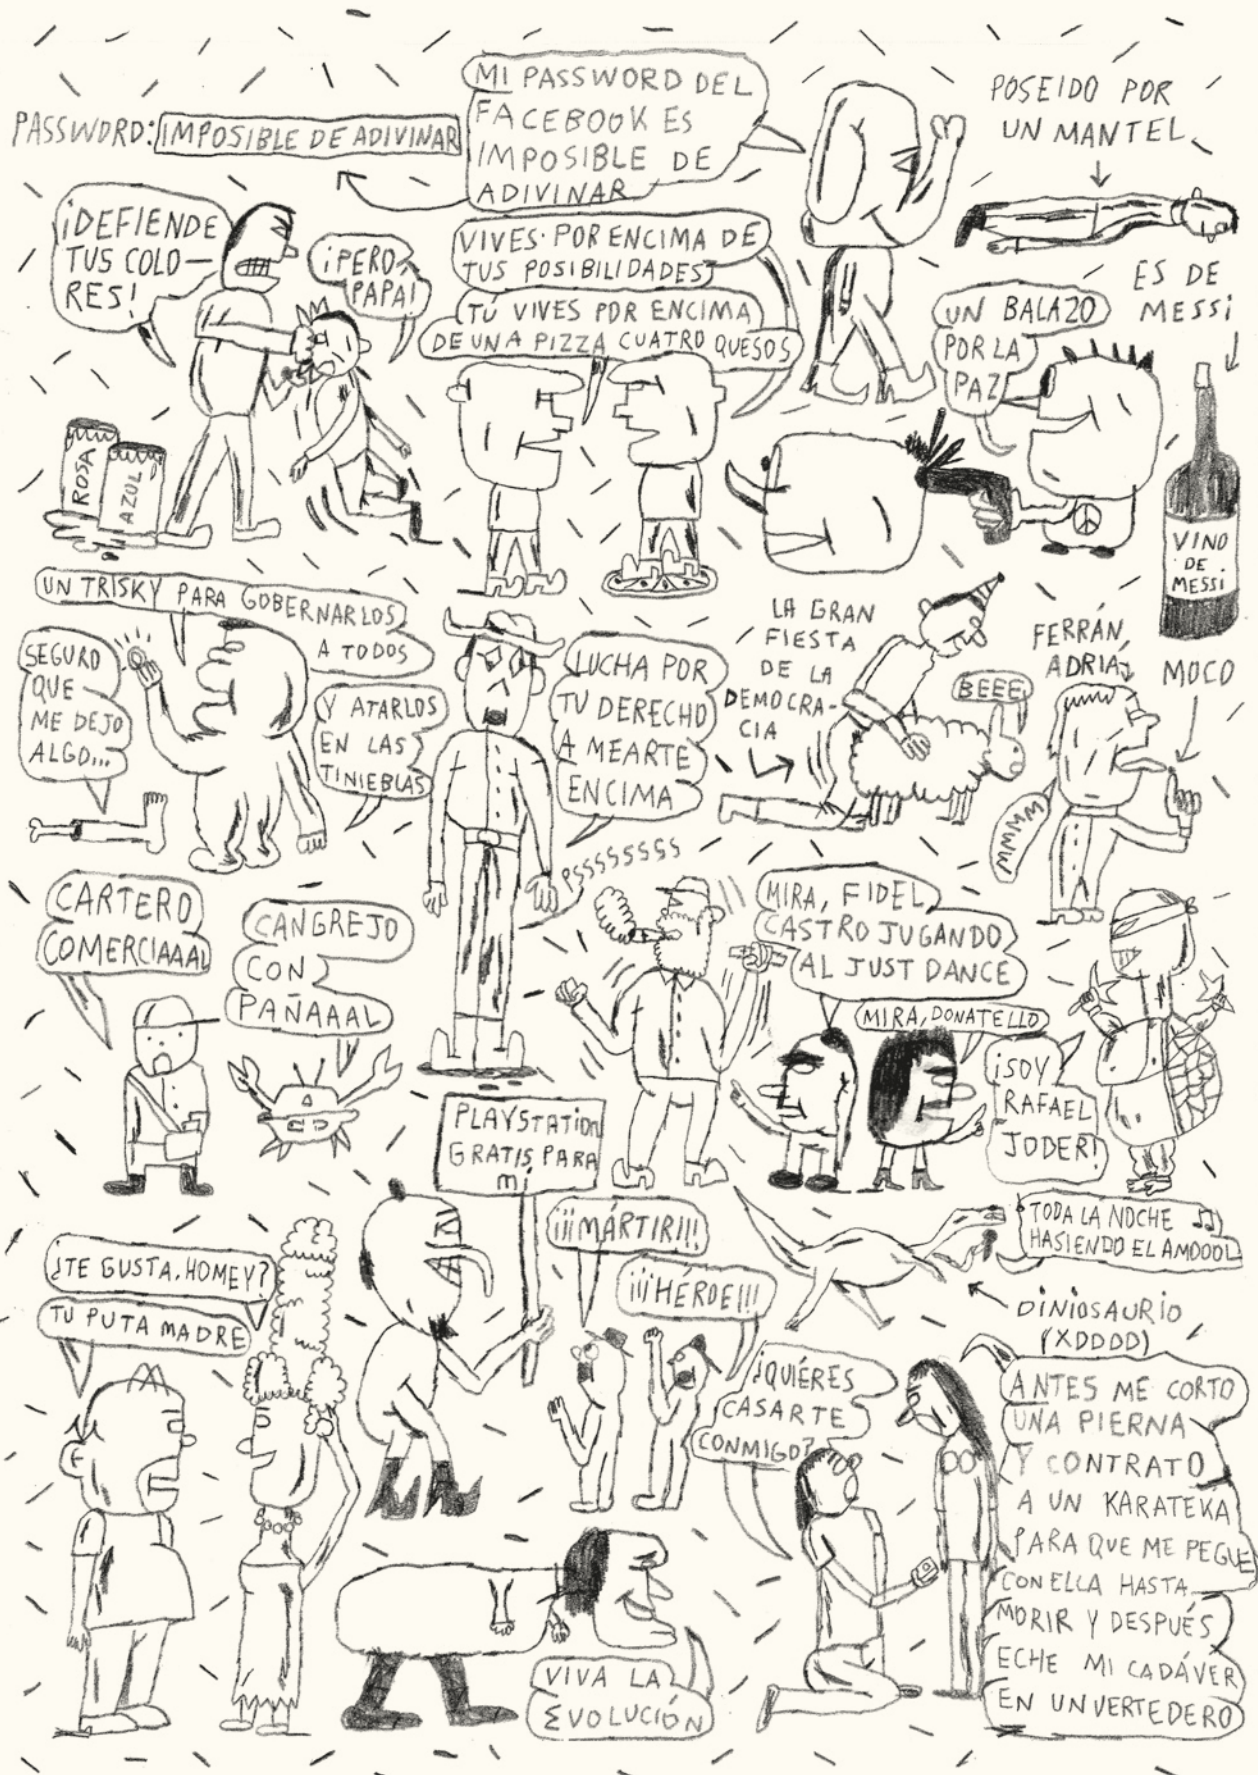 PASSWORD: IMPOSIBLE DE ADIVINAR
MI PASSWORD DEL
FACEBOOK ES
IMPOSIBLE DE
ADIVINAR
POSEIDO POR
UN MANTEL
¡DEFIENDE
TUS COLO-
RES!
¡PERO
PAPA!
ROSA
AZUL
VIVES POR ENCIMA DE
TUS POSIBILIDADES
TÚ VIVES POR ENCIMA
DE UNA PIZZA CUATRO QUESOS
UN BALAZO
POR LA
PAZ
ES DE
MESSI
VINO
DE
MESSI
UN TRISKY PARA GOBERNARLOS
A TODOS
SEGURO
QUE
ME DEJO
ALGO...
Y ATARLOS
EN LAS
TINIEBLAS
LUCHA POR
TU DERECHO
A MEARTE
ENCIMA
PSSSSSSSS
LA GRAN
FIESTA
DE LA
DEMOCRA-
CIA
BEEE
FERRÁN
ADRIA
MOCO
MMMM
CARTERO
COMERCIAAAL
CANGREJO
CON
PAÑAAAL
MIRA, FIDEL
CASTRO JUGANDO
AL JUST DANCE
MIRA, DONATELLO
¡SOY
RAFAEL
JODER!
PLAYSTATION
GRATIS PARA
mí
¡¡¡MÁRTIR!!!
¡¡¡HÉROE!!!
TODA LA NOCHE
HASIENDO EL AMOOOL
DINIOSAURIO
(XDDDD)
¿TE GUSTA, HOMEY?
TU PUTA MADRE
¿QUIÉRES
CASARTE
CONMIGO?
ANTES ME CORTO
UNA PIERNA
Y CONTRATO
A UN KARATEKA
PARA QUE ME PEGUE
CON ELLA HASTA
MORIR Y DESPUÉS
ECHE MI CADÁVER
EN UN VERTEDERO
VIVA LA
EVOLUCIÓN